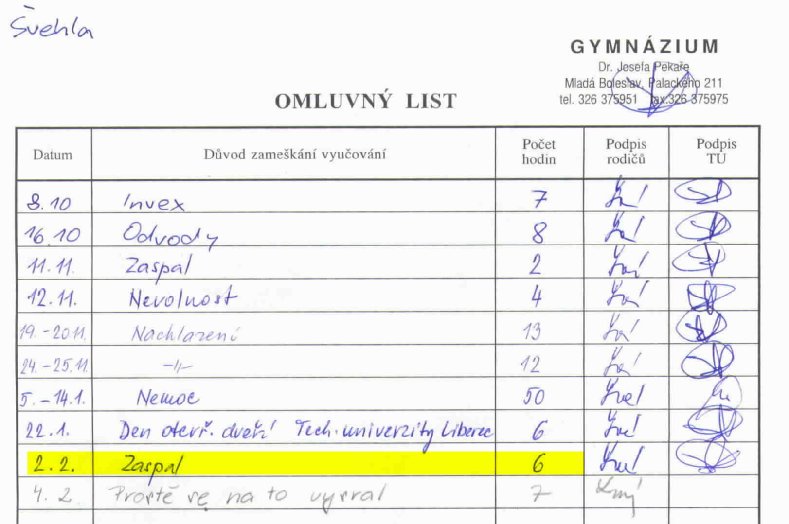 Švehla
GYMNÁZIUM
Dr. Josefa Pekaře
Mladá Boleslav, Palackého 211
tel. 326 375951 fax.326 375975
OMLUVNÝ LIST
Datum Důvod zameškání vyučování Počet hodin Podpis rodičů Podpis TU
8.10 Invex 7
16.10 Odvody 8
11.11. Zaspal 2
12.11. Nevolnost 4
19.-20.11. Nachlazení 13
24.-25.11 -//- 12
5.-14.1. Nemoc 50
22.1. Den otevř. dveří Tech. univerzity Liberec 6
2.2. Zaspal 6
4.2 Prostě se na to vysral 7